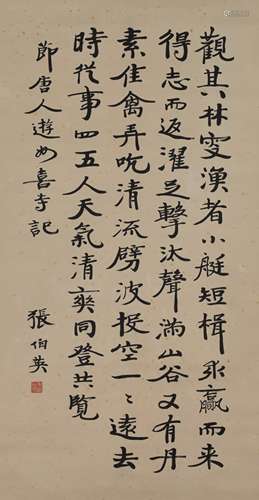 觀其林变漁者小艇短楫永贏而来
得志而返濯足擊汰聲滿山谷又有丹
素佳禽弄吭清流劈波投空一一遠去
時從事四五人天氣清爽同登共覧
節唐人遊如喜寺記
張伯英